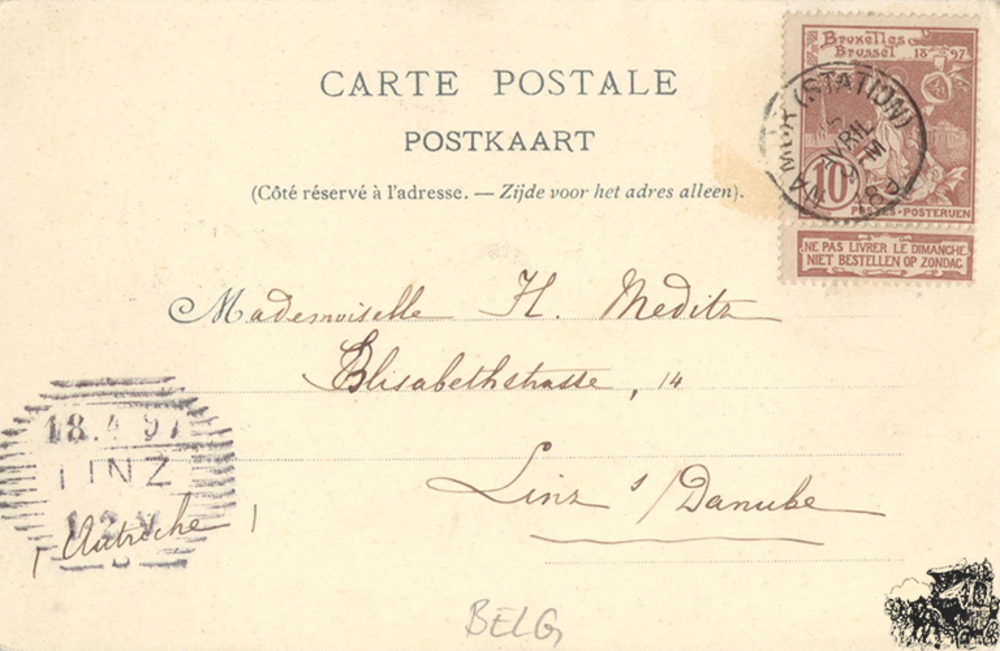 CARTE POSTALE
POSTKAART
(Côté réservé à l'adresse. — Zijde voor het adres alleen).
Bruxelles
Brussel 18 97
NAMUR (STATION)
AVRIL
10
POSTES-POSTERIJEN
NE PAS LIVRER LE DIMANCHE
NIET BESTELLEN OP ZONDAG
Mademoiselle H. Meditz
Elisabethstrasse, 14
Linz s/Danube
(Autriche)
18.4 97
LINZ
BELG